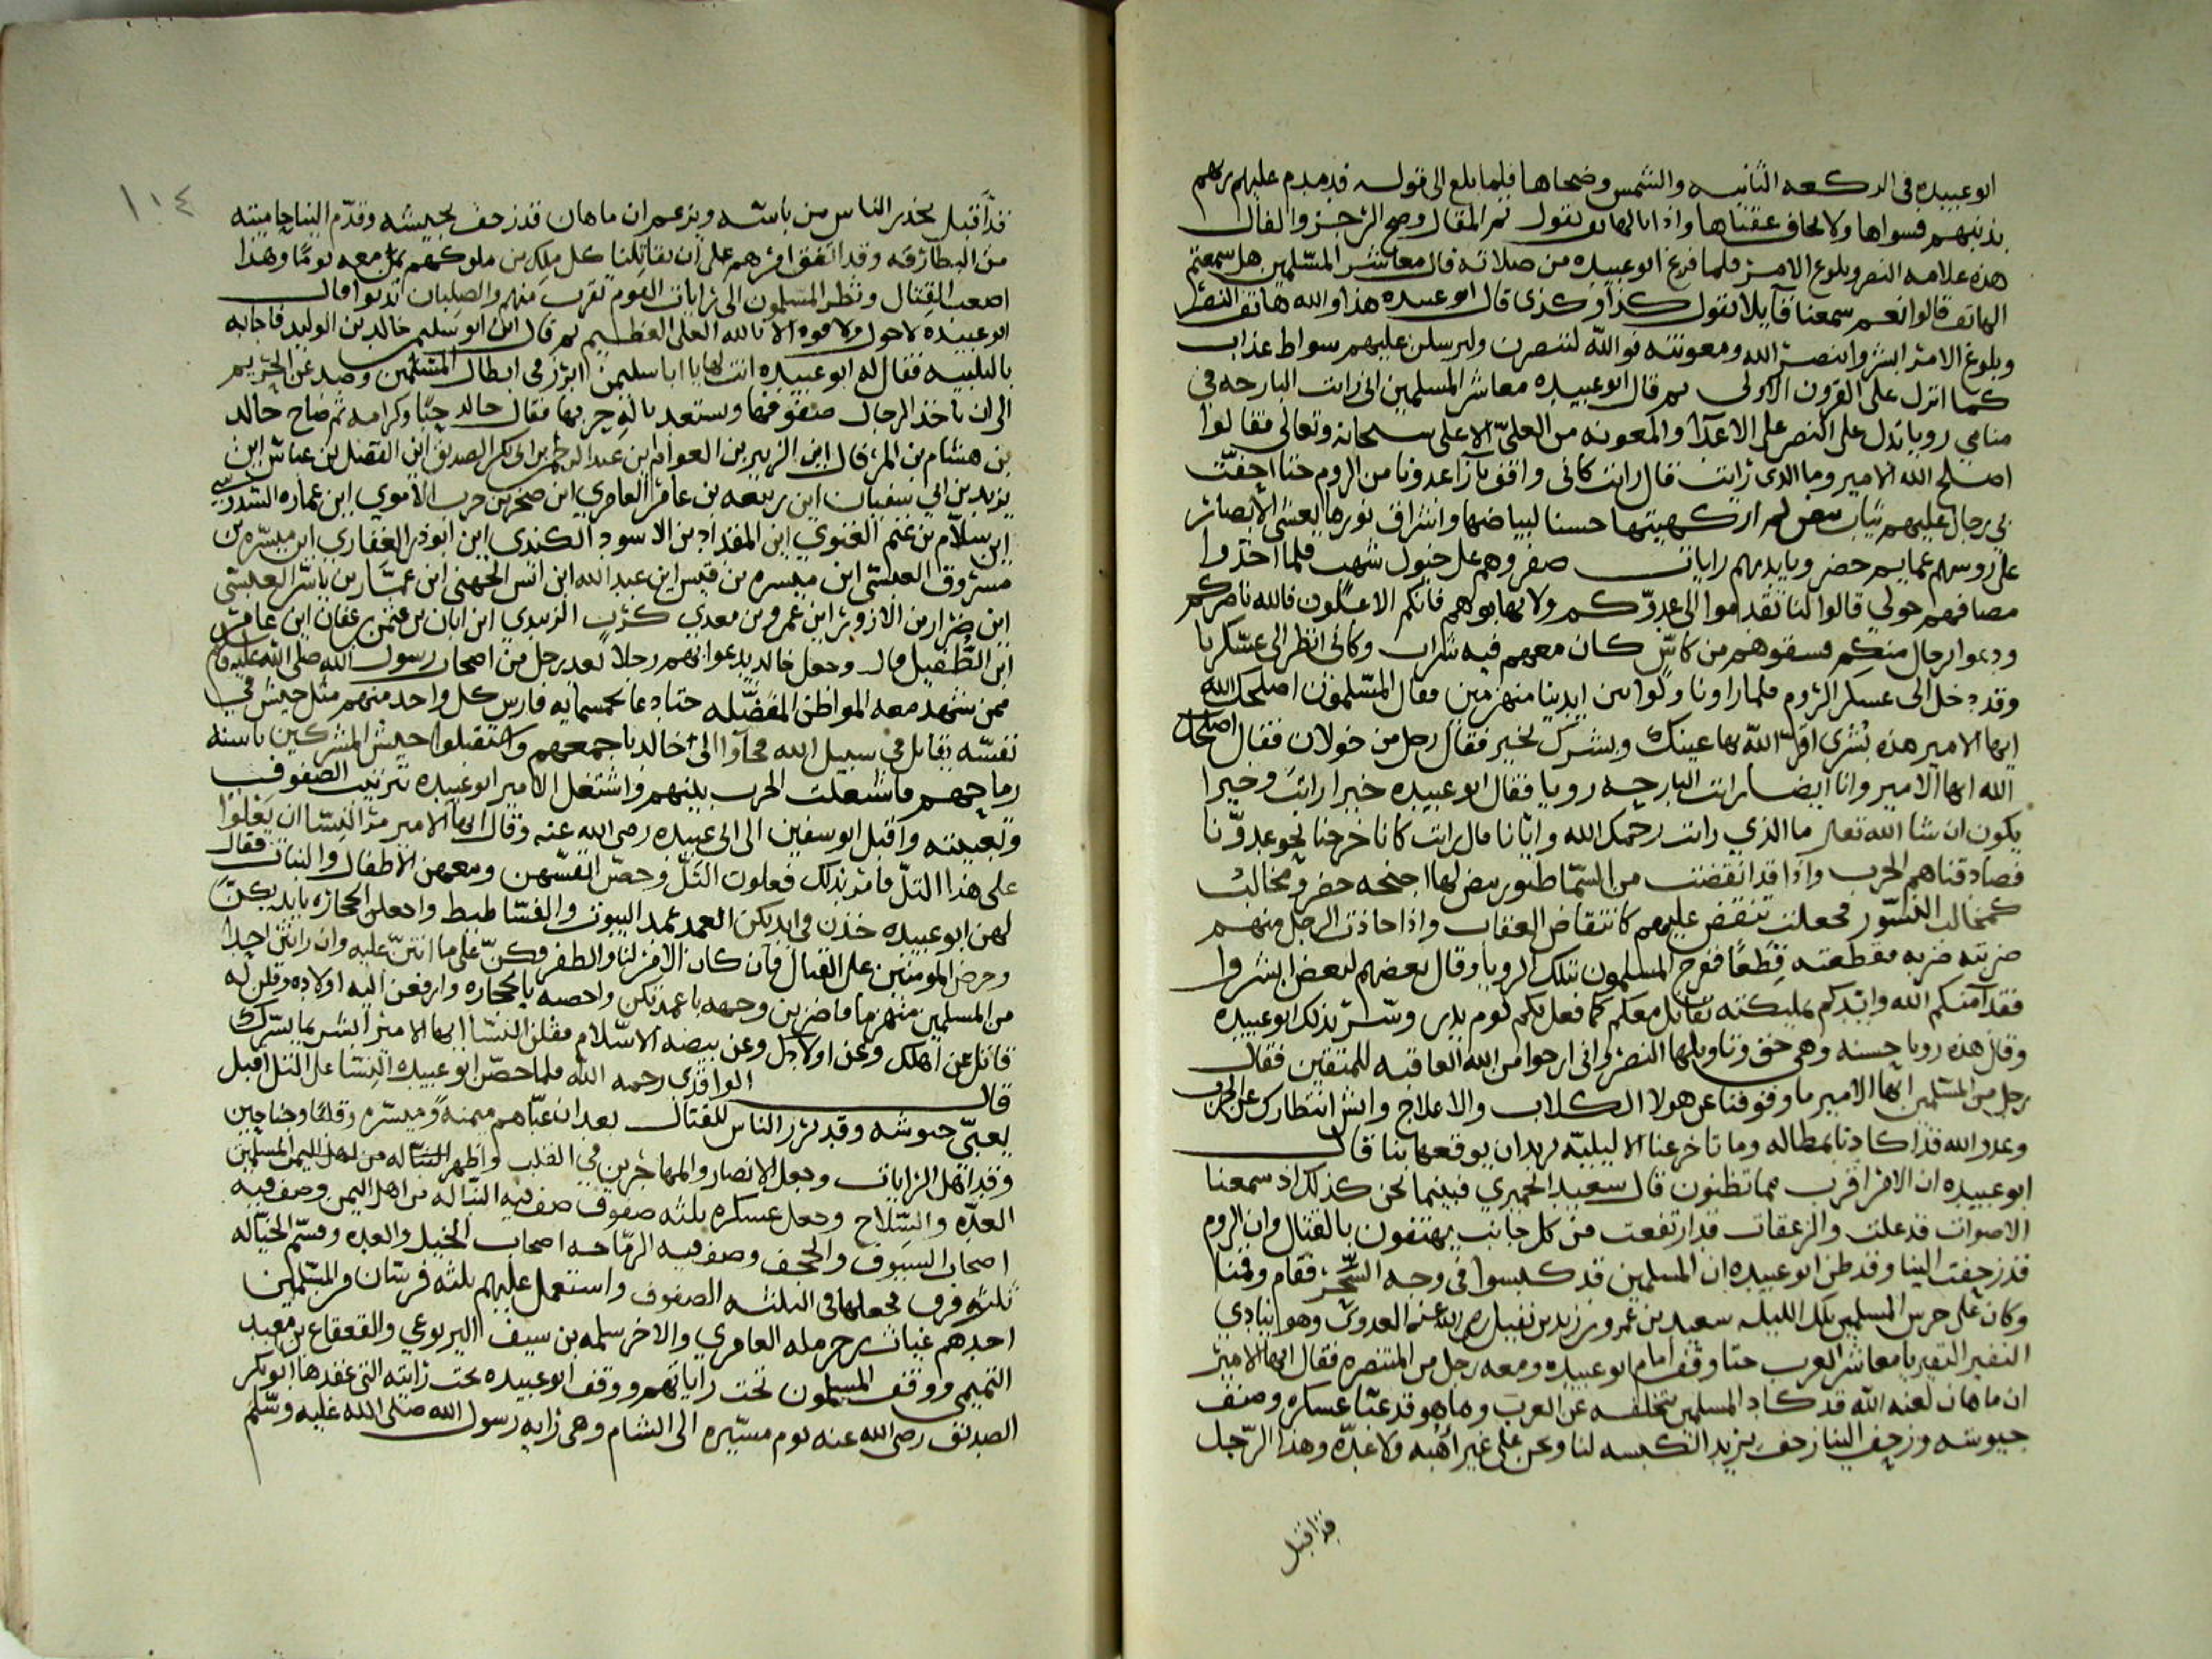 ابو عبيده في الركعه الثانيه والشمس وضحاها فلما بلغ الى قوله فدمدم عليهم ربهم
بذنبهم فسواها ولا يخاف عقباها واذا بالهاتف يقول تم المقال وصح الزجر والفال
هذه علامه النصر وبلوغ الامر فلما فرغ ابو عبيده من صلاته قال معاشر المسلمين هل سمعتم
الهاتف قالوا نعم سمعنا قايلا يقول كذا وكذى قال ابو عبيده هذا والله هاتف النصر
وبلوغ الامر ابشروا بنصر الله ومعونته فو الله لننصرن وليرسلن عليهم سواط عذاب
كما انزل على القرون الاولى ثم قال ابو عبيده معاشر المسلمين اني رايت البارحه في
منامي رويا تدل على النصر على الاعدا والمعونه من العليّ الاعلى سبحانه وتعالى فقالوا
اصلح الله الامير وما الذي رايت قال رايت كاني واقف بازا عدونا من الروم حتا احفّت
بي رجال عليهم ثياب بيض لم ار كهيتها حسنا لبياضها واشراق نورها يغشي الابصار
على روسهم عمايم خضر وبايديهم رايات صفر وهم على خيول شهب فلما اخذوا
مصافهم حولي قالوا لنا تقدموا الى عدوّكم ولا تهابوهم فانكم الاعلون فالله ناصركم
ودعوا رجال منكم فسقوهم من كاسٍ كان معهم فيه شراب وكاني انظر الى عسكرنا
وقد دخل الى عسكر الروم فلما راونا ولّوا من ايدينا منهزمين فقال المسلمون اصلحك الله
ايها الامير هذه بشرى اقرّ الله بها عينك وبشرك بخير فقال رجل من خولان فقال اصلحك
الله ايها الامير وانا ايضا رايت البارحه رويا فقال ابو عبيده خيرا رايت وخيرا
يكون ان شا الله تعالى ما الذي رايت رحمك الله وايانا قال رايت كانا خرجنا نحو عدوّنا
فصادقناهم الحرب واذا قد انقضت من السما طيور بيض لها اجنحه خضر ومخالب
كمخالب النسور فجعلت تنقض عليهم كانتقاض العقاب واذا حاذت الرجل منهم
ضربته ضربه فقطعته قِطعًا ففرح المسلمون بتلك الرويا وقال بعضهم لبعض ابشروا
فقد امنكم الله وايّدكم بمليكته تقاتل معكم كما فعل بكم يوم بدر وسُرّ بذلك ابو عبيده
وقال هذه رويا حسنه وهي حق وتاويلها النصر واني ارجوا من الله العاقبه للمتقين فقال
رجل من المسلمين ايها الامير ما وقوفنا عن هولا الكلاب والاعلاج وايش انتظارك عن الحرب
وعدو الله قد كادنا بمطاله وما تاخر عنا الا لبليّه يريد ان يوقعها بنا قال
ابو عبيده ان الامر اقرب مما تظنون قال سعيد الحميري فبينما نحن كذلك اذ سمعنا
الاصوات قد علت والزعقات قد ارتفعت من كل جانب يهتفون بالقتال وان الروم
قد زحفت الينا وقد ظن ابو عبيده ان المسلمين قد كبسوا في وجه السحَر فقام وقمنا
وكان على حرس المسلمين تلك الليله سعيد بن عمرو بن زيد بن نفيل رضي الله عنه العدوي وهو ينادي
النفير النفير يا معاشر العرب حتا وقف امام ابو عبيده ومعه رجل من المتنصره فقال ايها الامير
ان ماهان لعنه الله قد كاد المسلمين بتخلفه عن العرب وهاهو قد عبّا عسكره وصف
جيوشه وزحف الينا زحف يريد الكبسه لنا ونحن على غير اُهبه ولا عدّه وهذا الرّجل
قد اقبل
١١٤
قد اقبل يحذر الناس من باسه ويزعم ان ماهان قد زحف بجيشه وقدّم الينا حاميته
من البطارقه وقد اتفق امرهم على ان يقاتلنا كل ملك من ملوكهم بمن معه يومًا وهذا
اصعب القِتال ونظر المسلمون الى رايات القوم تقرب منهم والصلبان قد بدوا قال
ابو عبيده لا حول ولا قوه الا بالله العلي العظيم ثم قال اين ابو سليمن خالد بن الوليد فاجابه
بالتلبيه فقال له ابو عبيده انت لها يا ابا سليمن ابرز في ابطال المسلمين وصد عن الحريم
الى ان تاخذ الرجال صفوفها وتستعد بالةِ حربها فقال خالد حبًّا وكرامه ثم صاح خالد
بن هشام بن المرقال اين الزبير بن العوام اين عبد الرحمن بن ابي بكر الصديق اين الفضل بن عباس اين
يزيد بن ابي سفيان اين ربيعه بن عامر العامري اين صخر بن حرب الاموي اين عماره السدوسي
اين سلام بن غنم الغنوي اين المقداد بن الاسود الكندي اين ابو ذر الغفاري اين ميسره بن
مسروق العبسي اين ميسره بن قيس اين عبد الله ابن انس الجهني اين عمّار بن ياسر العبسي
اين ضرار بن الازور اين عمرو بن معدي كرب الزبيدي اين ابان بن عثمن بن عفان اين عامر
ابن الطفيل قال وجعل خالد يدعوا بهم رجلا بعد رجل من اصحاب رسول الله صلى الله عليه وسلم
ممن شهد معه المواطن المفضّله حتا دعا بخمسمايه فارس كل واحد منهم مثل جيش في
نفسه يقاتل في سبيل الله فجاوا الى خالد باجمعهم واستقبلوا جيش المشركين باسنه
رماحهم فاشتعلت الحرب بينهم واشتغل الامير ابو عبيده بترتيب الصفوف
وتعبيته واقبل ابو سفين الى ابي عبيده رضي الله عنه وقال ايها الامير مر النسا ان يعلوا
على هذا التلّ فامر بذلك فعلون التَلّ وحصّن انفسهن ومعهن الاطفال والبنات فقال
لهن ابو عبيده خذن في ايديكن العمد عمد البيوت والفساطيط واجعلن الحجاره بايديكنّ
وحرضن المومنين على القتال فان كان الامر لنا والظفر فكنّ على ما انتنّ عليه وان رايتن احدا
من المسلمين منهزما فاضربن وجهه باعمدتكن واحصبنه بالحجاره وارفعن اليه اولاده وقلن له
قاتل عن اهلك وعن اولادك وعن بيضه الاسلام فقلن النسا ايها الامير ابشر بما يسرك
قال الواقدي رحمه الله فلما حصّن ابو عبيده النسا على التل اقبل
يعبّي جيوشه وقد برز الناس للقتال بعد ان عبّاهم ميمنةً وميسره وقلبًا وجناحين
وقد اهّل الرايات وجعل الانصار والمهاجرين في القلب واظهر النباله من اهل اليمن المسلمين
العدّه والسّلاح وجعل عسكره ثلثه صفوف صف فيه النبّاله من اهل اليمن وصف فيه
اصحاب السيوف والحجف وصف فيه الرمّاحه اصحاب الخيل والعده وقسّم الخيّاله
ثلثه فرق فجعلها في الثلثه الصفوف واستعمل عليهم ثلثه فرسان من المسلمين
احدهم غياث بن حرمله العامري والاخر سلمه بن سيف اليربوعي والقعقاع بن معبد
التميمي ووقف المسلمون تحت راياتهم ووقف ابو عبيده تحت رايته التي عقدها ابو بكر
الصديق رضي الله عنه يوم مسيره الى الشام وهي رايه رسول الله صلى الله عليه وسلم